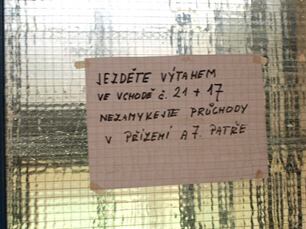 JEZDĚTE VÝTAHEM
VE VCHODĚ č. 21 + 17
NEZAMYKEJTE PRŮCHODY
V PŘÍZEMÍ A 7. PATŘE